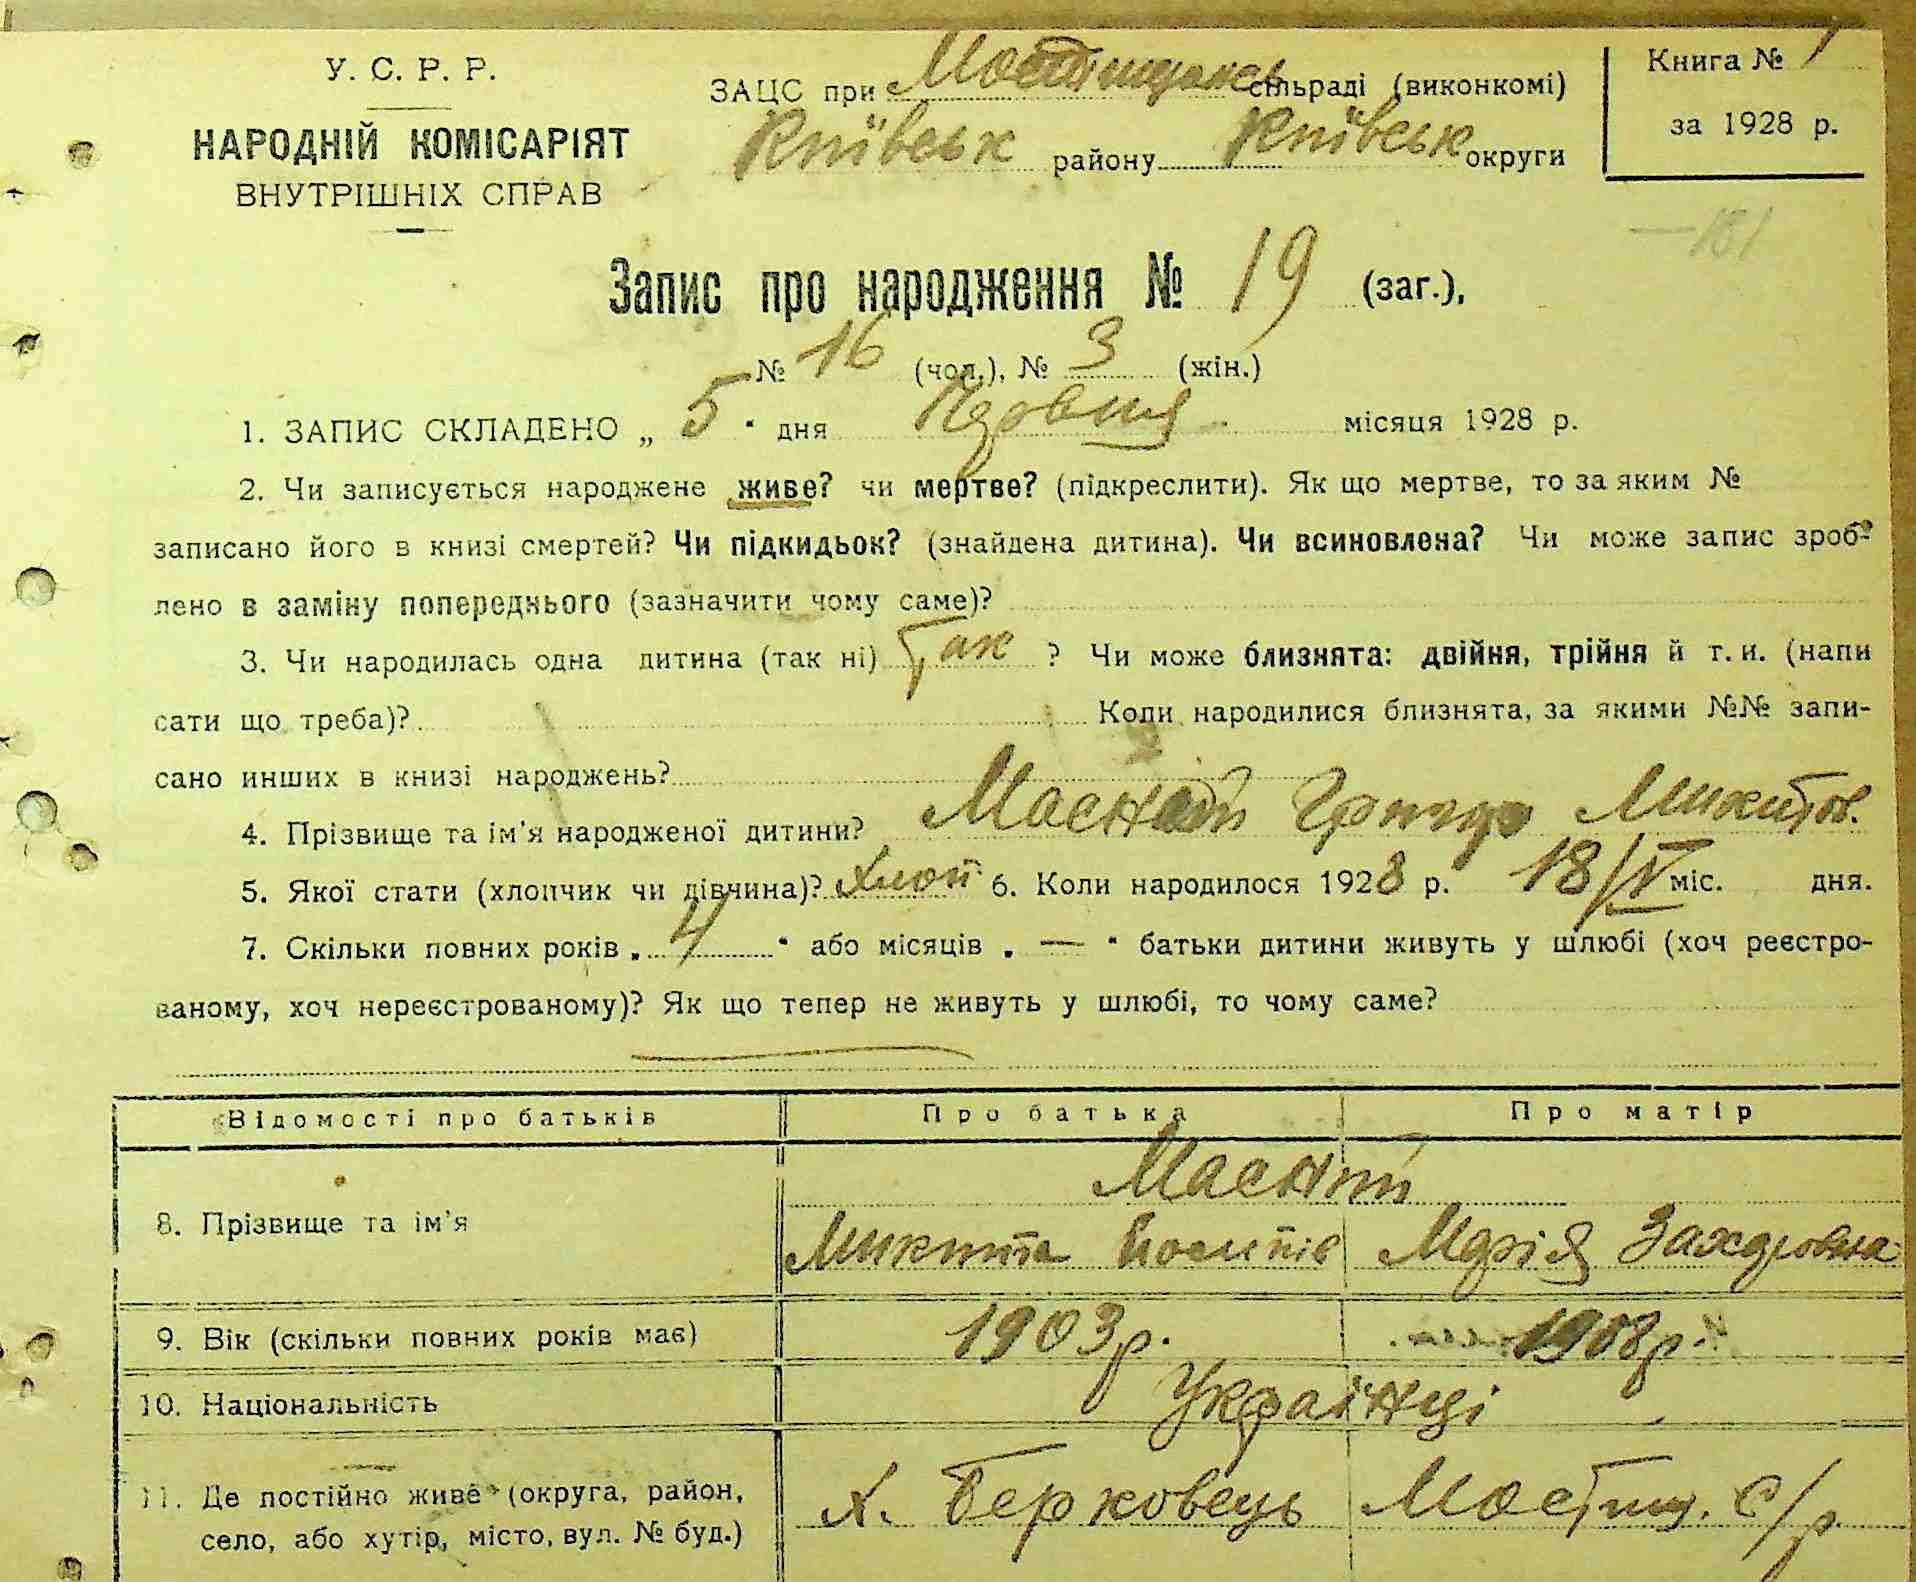 У. С. Р. Р.
НАРОДНІЙ КОМІСАРІЯТ
ВНУТРІШНІХ СПРАВ
ЗАЦС при Мостищанс сільраді (виконкомі)
Київськ району Київськ округи
Книга № 1
за 1928 р.
Запис про народження № 19 (заг.),
№ 16 (чол.), № 3 (жін.)
1. ЗАПИС СКЛАДЕНО „ 5 " дня місяця 1928 р.
2. Чи записується народжене живе? чи мертве? (підкреслити). Як що мертве, то за яким №
записано його в книзі смертей? Чи підкидьок? (знайдена дитина). Чи всиновлена? Чи може запис зроб-
лено в заміну попереднього (зазначити чому саме)?
3. Чи народилась одна дитина (так ні) Так ? Чи може близнята: двійня, трійня й т. и. (напи
сати що треба)? Коли народилися близнята, за якими №№ запи-
сано инших в книзі народжень?
4. Прізвище та ім'я народженої дитини? Масний Григор Микитов.
5. Якої стати (хлопчик чи дівчина)? Хлоп 6. Коли народилося 1928 р. 18/IV міс. дня.
7. Скільки повних років „ 4 " або місяців „ — " батьки дитини живуть у шлюбі (хоч реєстро-
ваному, хоч нереєстрованому)? Як що тепер не живуть у шлюбі, то чому саме?
Відомості про батьків Про батька Про матір
Масний
8. Прізвище та ім'я Микита Йосипів Марія Захаровна
9. Вік (скільки повних років має) 1903 р. 1903 р.
10. Національність Українці
11. Де постійно живе (округа, район, х. Берковець Мостищ. с/р.
село, або хутір, місто, вул. № буд.)